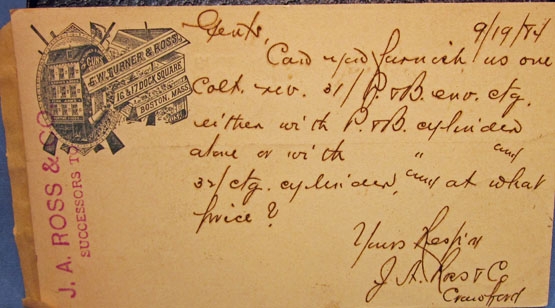 GUNS
E. W. TURNER & ROSS.
16 & 17 DOCK SQUARE
BOSTON, MASS
J. A. ROSS & CO
SUCCESSORS TO
9/19/84
Gents,
Can you furnish us one
Colt. rev. 31/ P. & B. env. ctg.
either with P. & B. cylinder
alone or with " and
32/ ctg. cylinder, and at what
price?
Yours Respy
J. A. Ross & Co
Crawford